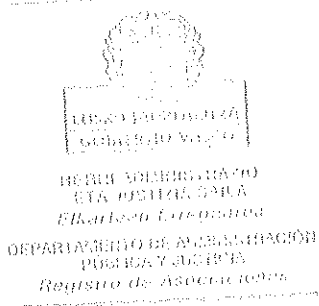 EUSKO JAURLARITZA
GOBIERNO VASCO
HERRI ADMINISTRAZIO
ETA JUSTIZIA SAILA
Elkarteen Erregistroa
DEPARTAMENTO DE ADMINISTRACIÓN
PÚBLICA Y JUSTICIA
Registro de Asociaciones